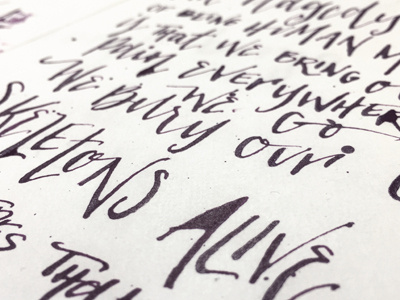 Tragedy
of being HUMAN M
is that WE BRING O
PAIN EVERYWHERE
WE GO
WE BURY OUR
SKELETONS ALIVE